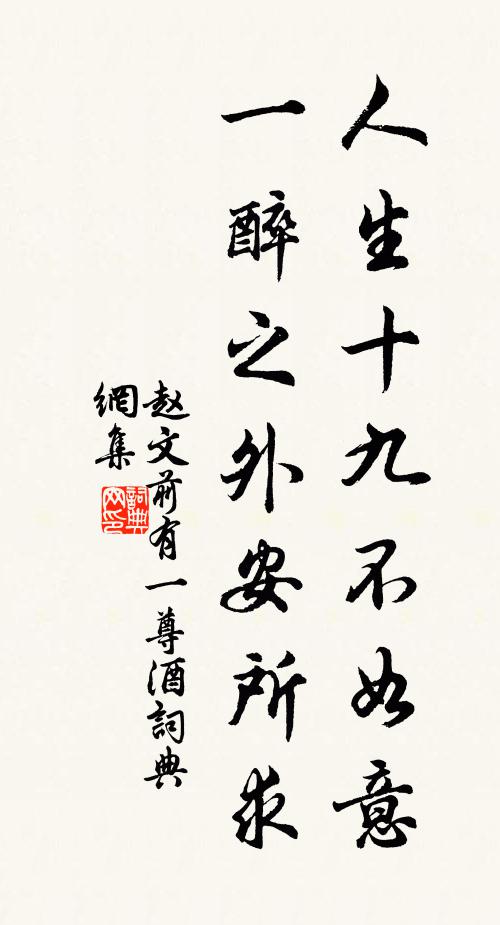 人生十九不如意
一醉之外安所求
赵文前有一尊酒詞典
網集
詞典
网印